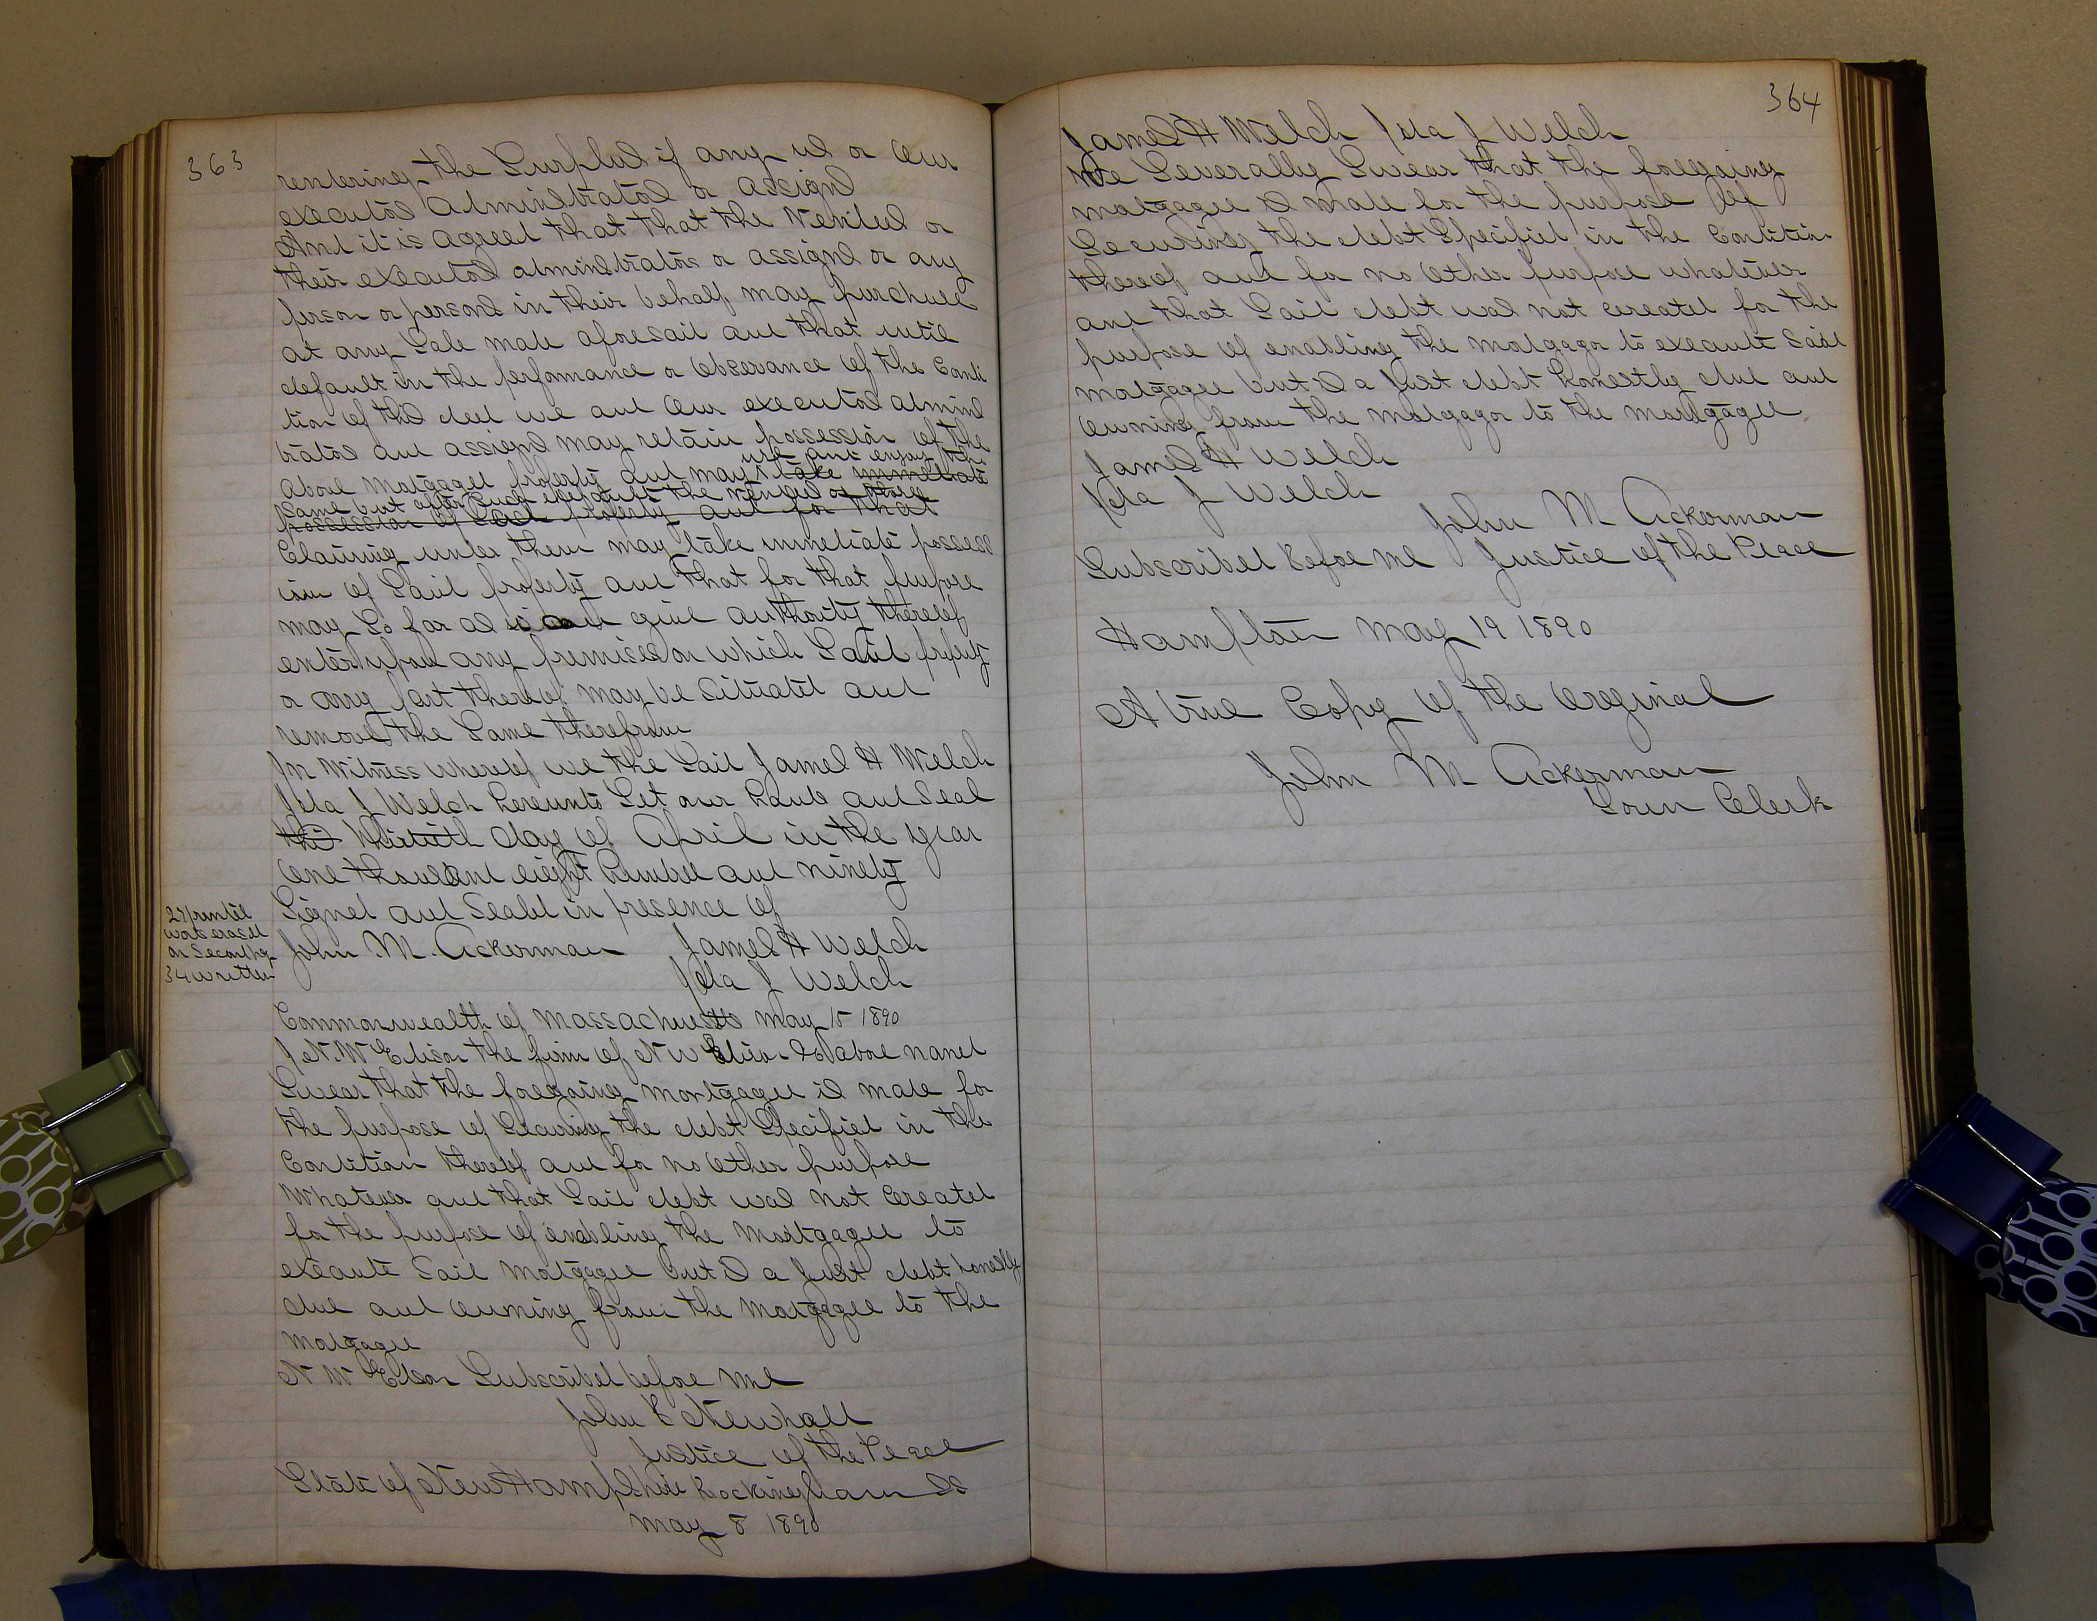 363
rentering the Surplus if any us or Our
executos Administratos or assigns
And it is agreed that that the Vendees or
their executos administratos or assigns or any
person or persons in their behalf may purchase
at any Sale made aforesaid and that until
default in the performance or Observance of the Condi
tion of this deed we and Our executos adminis
tratos and assigns may retain possession of the
above Mortgaged property and may use and enjoy the take immediate
same but after Such default the vendees or those
possession of Said property and for that
Claiming under them may take immediate possess
ion of Said property and that for that purpose
may So far as we can give authority thereof
enter upon any premises on which Said property
or any part thereof may be Situated and
remove the Same therefrom
In Witness whereof we the Said James H Welch
Ida J Welch hereunto Set our hands and Seal
this thirtieth day of April in the year
One thousand eight hundred and ninety
Signed and Sealed in presence of
27 printed
words erased
on Second pg
34 written
John M. Ackerman James H Welch
Ida J Welch
Commonwealth of Massachusetts May 15 1890
I N. W Edson the firm of N W Edson & Co above named
Swear that the foregoing Mortgagee is made for
the purpose of Securing the debt Specified in the
Condition thereof and for no Other purpose
Whatever and that Said debt was not Created
for the purpose of enabling the Mortgagee to
execute Said Motgagee but is a Just debt honestly
due and Owming from the Motgagee to the
Motgagee
N W Edson Subscribed before me
John C Newhall
Justice of the Peace
State of New Hampshire Rockingham SS
May 8 1890
364
James H Welch Ida J Welch
We Severally Swear that the foregoing
motgagee is made for the purpose Of
Securing the debt Specified in the Condition
thereof and for no Other purpose whatever
and that Said debt was not Created for the
purpose of enabling the Motgagor to execute Said
motgagee but is a Just debt honestly due and
Owning from the Motgagor to the Mortgagee
James H Welch
Ida J Welch
John M Ackerman
Subscribed Before Me Justice of the Peace
Hampton May 19 1890
A true Copy of the Oreginal
John M Ackerman
Town Clerk